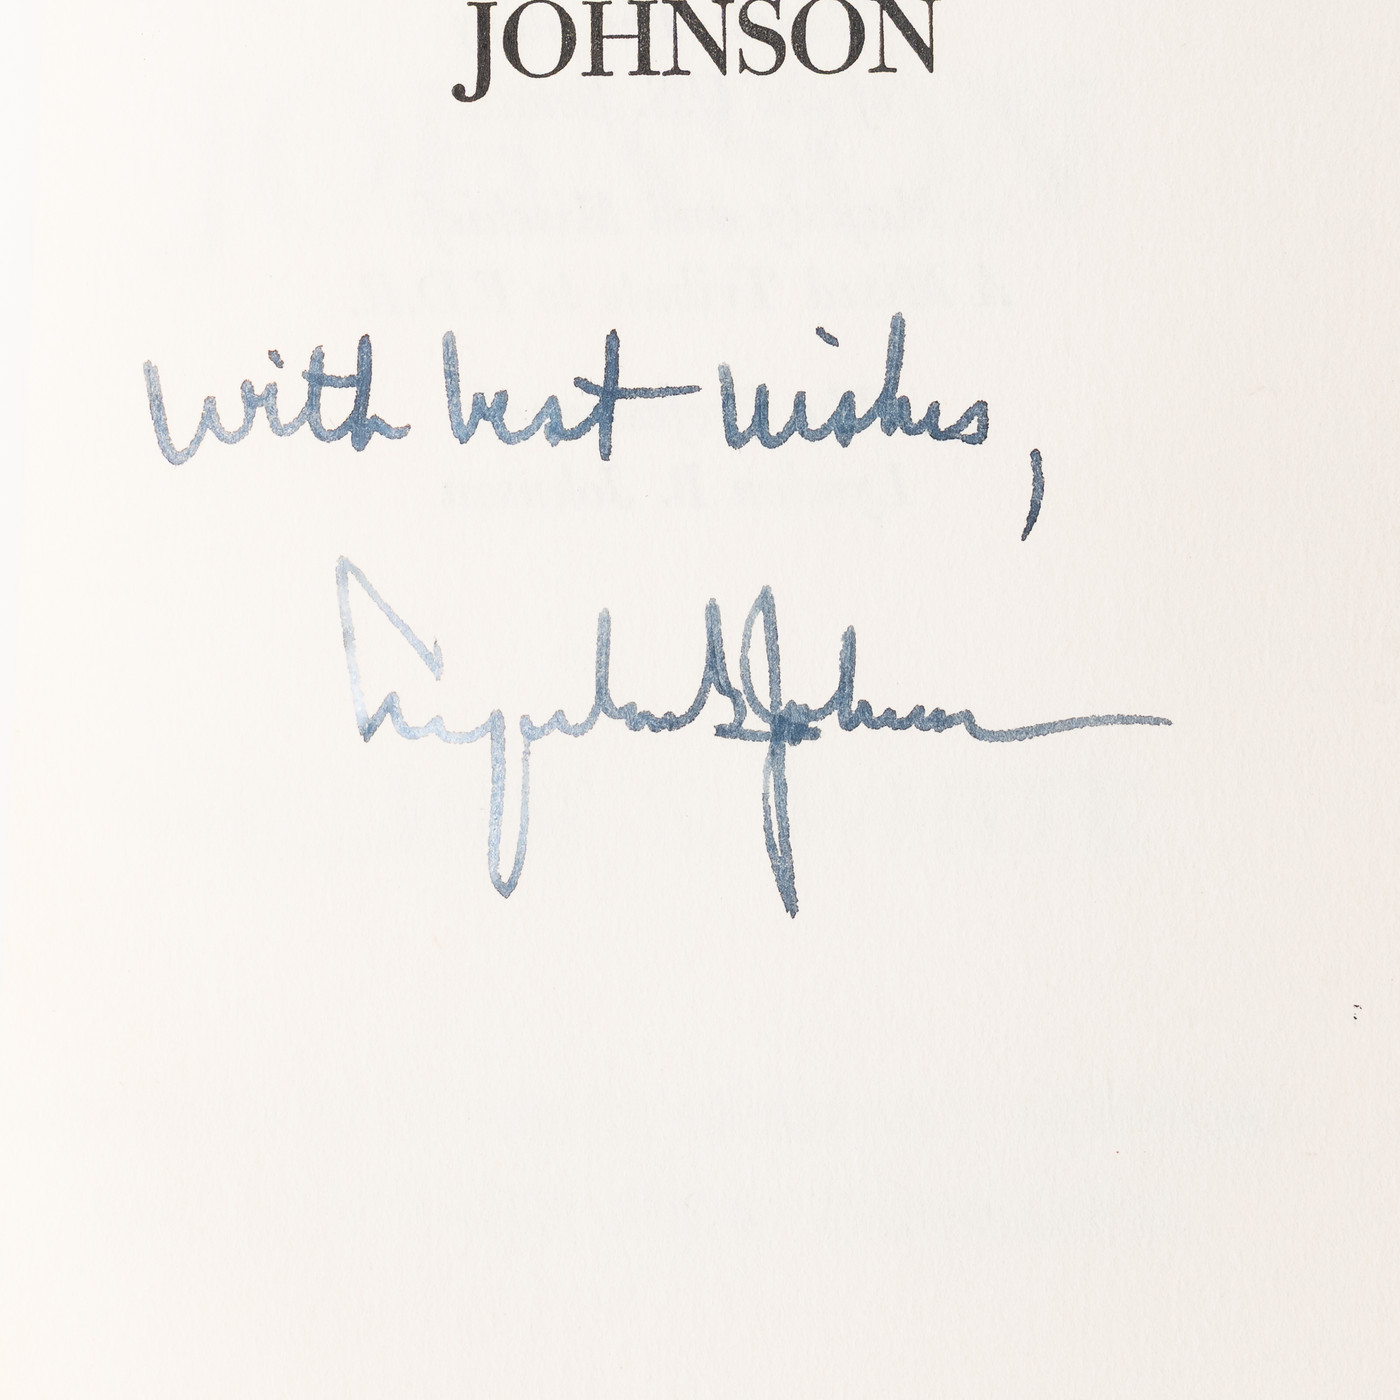 JOHNSON
With best wishes,
Lyndon B Johnson